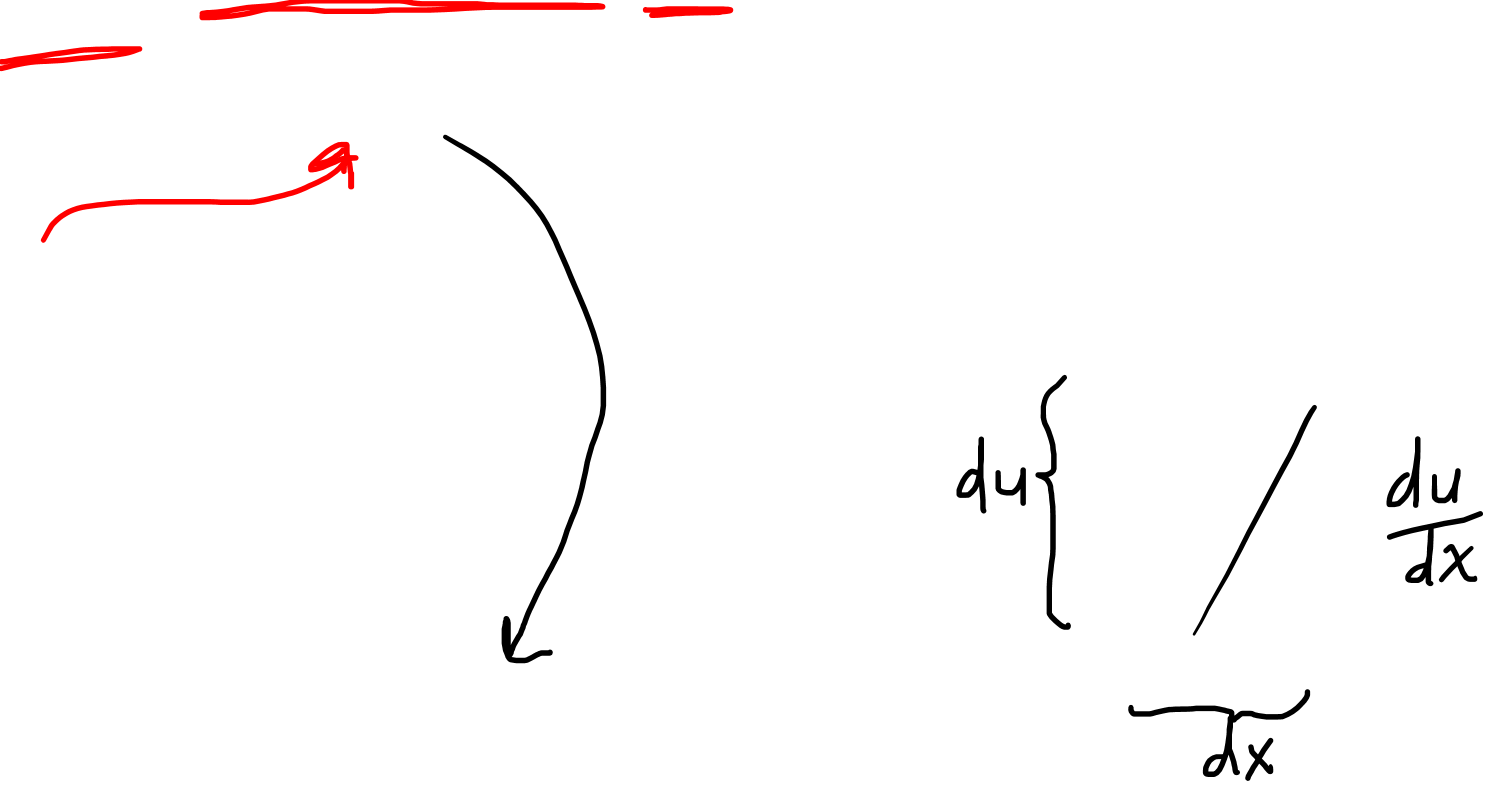 du
du
dx
dx